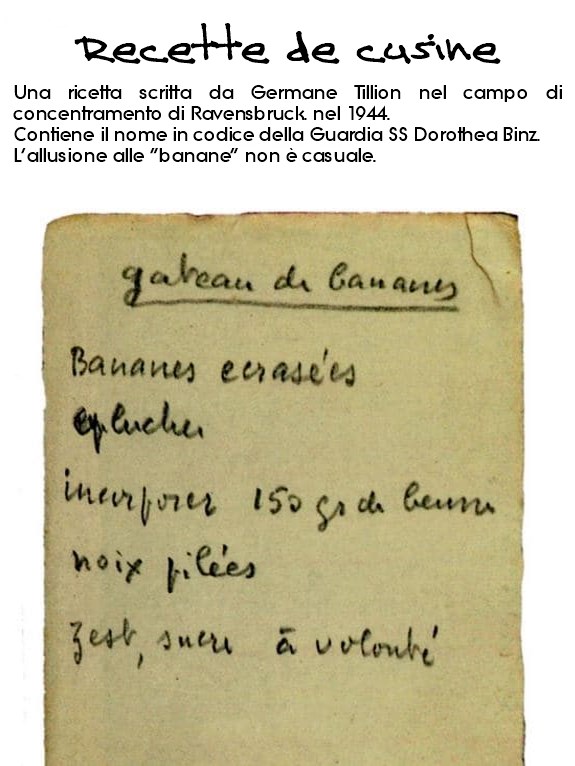 Recette de cusine
Una ricetta scritta da Germane Tillion nel campo di
concentramento di Ravensbruck nel 1944.
Contiene il nome in codice della Guardia SS Dorothea Binz.
L'allusione alle "banane" non è casuale.
gateau de bananes
Bananes ecrasées
eplucher
incorporer 150 gr de beurre
noix pilées
Zest, sucre à volonté